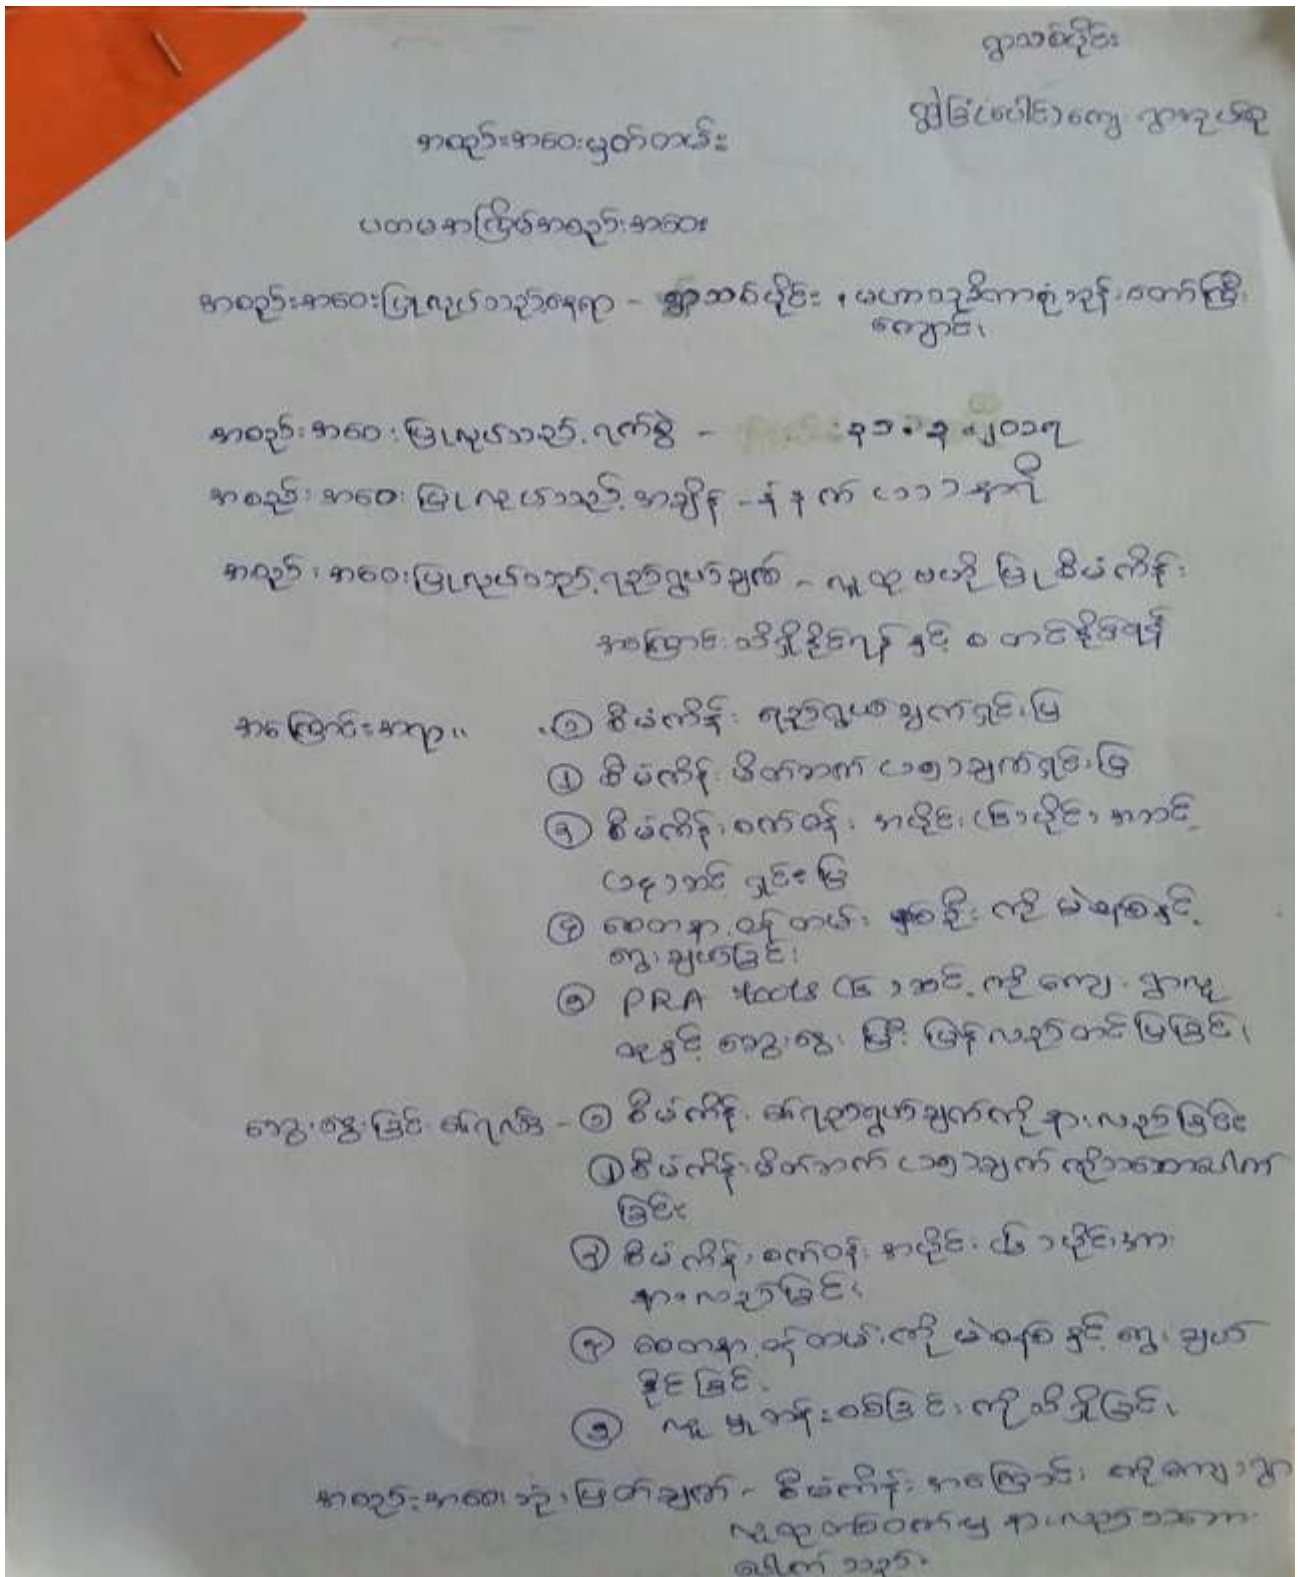 ရွာသစ်ပိုင်း
ကျေးရွာအုပ်စု
အစည်းအဝေးမှတ်တမ်း
ပထမအကြိမ်အစည်းအဝေး
အစည်းအဝေးပြုလုပ်သည့်နေရာ - ရွာသစ်ပိုင်း ၊ မဟာသုဒိကာရုံဘုန်းတော်ကြီး
ကျောင်း၊
အစည်းအဝေးပြုလုပ်သည့်ရက်စွဲ - ၃၁.၃.၂၀၁၇
အစည်းအဝေးပြုလုပ်သည့်အချိန် - နံနက် (၁၁) နာရီ
အစည်းအဝေးပြုလုပ်သည့်ရည်ရွယ်ချက် - လူထုဗဟိုပြုစီမံကိန်း
အကြောင်းသိရှိနိုင်ရန် နှင့် စတင်နိုင်ရန်
အကြောင်းအရာ။ ၁ စီမံကိန်းရည်ရွယ်ချက်ရှင်းပြ
၂ စီမံကိန်းမိတ်ဘက် (၁၅) ချက်ရှင်းပြ
၃ စီမံကိန်းစက်ဝန်း အပိုင်း (၆) ပိုင်း၊ အဆင့်
(၁၄) ဆင့် ရှင်းပြ
၄ စေတနာ့ဝန်ထမ်း နှစ်ဦးကို မဲစနစ်နှင့်
ရွေးချယ်ခြင်း
၅ PRA tools (၆) ဆင့်ကို ကျေးရွာလူ
ထုနှင့် ဆွေးနွေးပြီး ပြန်လည်တင်ပြခြင်း၊
ဆွေးနွေးခြင်း၏ရလဒ် - ၁ စီမံကိန်း၏ရည်ရွယ်ချက်ကို နားလည်ခြင်း
၂ စီမံကိန်းမိတ်ဘက် (၁၅) ချက်ကိုသဘောပေါက်
ခြင်း
၃ စီမံကိန်းစက်ဝန်း အပိုင်း (၆) ပိုင်းအား
နားလည်ခြင်း၊
၄ စေတနာ့ဝန်ထမ်းကို မဲစနစ်နှင့် ရွေးချယ်
နိုင်ခြင်း၊
၅ လူမှုဆန်းစစ်ခြင်းကို သိရှိခြင်း၊
အစည်းအဝေးဆုံးဖြတ်ချက် - စီမံကိန်းအကြောင်းကို ကျေးရွာ
လူထုတစ်ဝက်မျှ နားလည်သဘော
ပေါက်သည်။